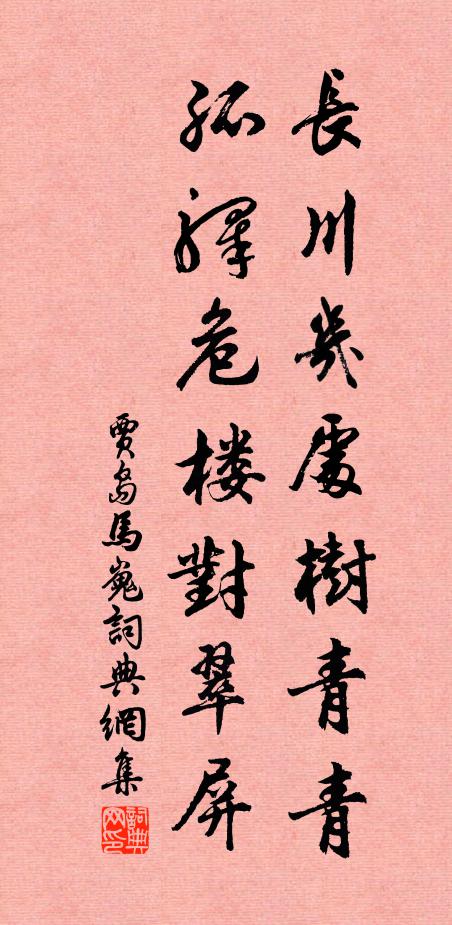 長川幾處樹青青
孤驛危楼對翠屏
賈島馬嵬詞典網集
詞典网印